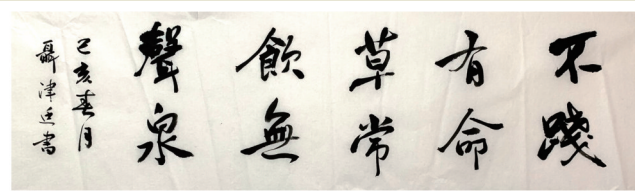 不踐
有命
草常
飲無
聲泉
己亥春月
聶津廷書